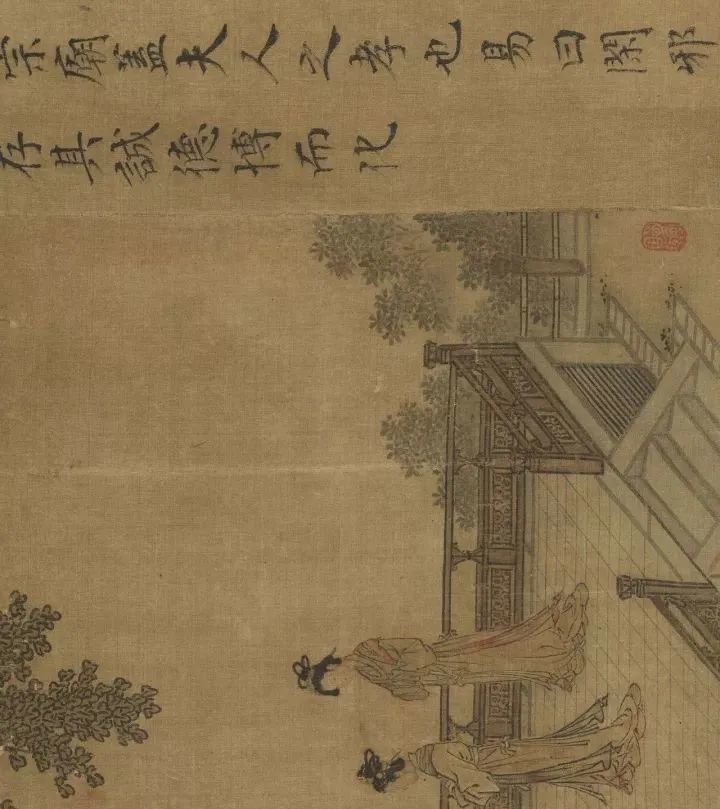 宗廟蓋夫人之孝也易曰閑邪
存其誠德博而化